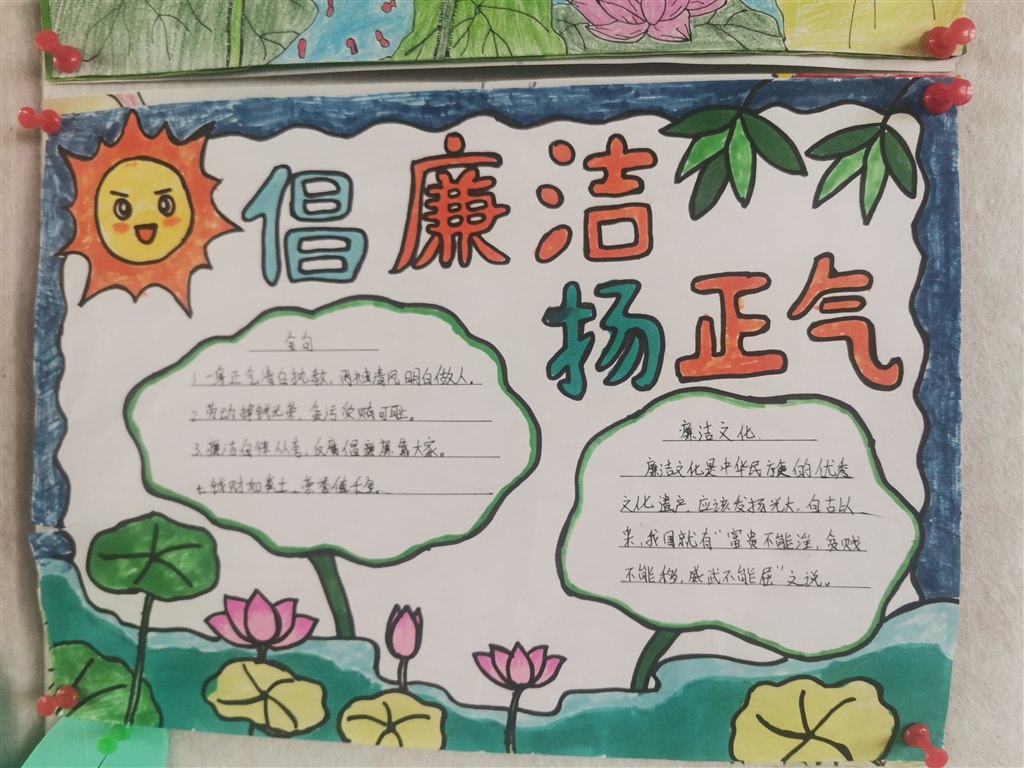 倡廉洁
扬正气
金句
1.一身正气清白执教,两袖清风明白做人。
2.劳动挣钱光荣,贪污受贿可耻。
3.廉洁自律从我,反腐倡廉靠大家。
4.钱财如粪土,荣誉值千金。
廉洁文化
廉洁文化是中华民族的优秀
文化遗产,应该发扬光大,自古以
来,我国就有“富贵不能淫,贫贱
不能移,威武不能屈”之说。